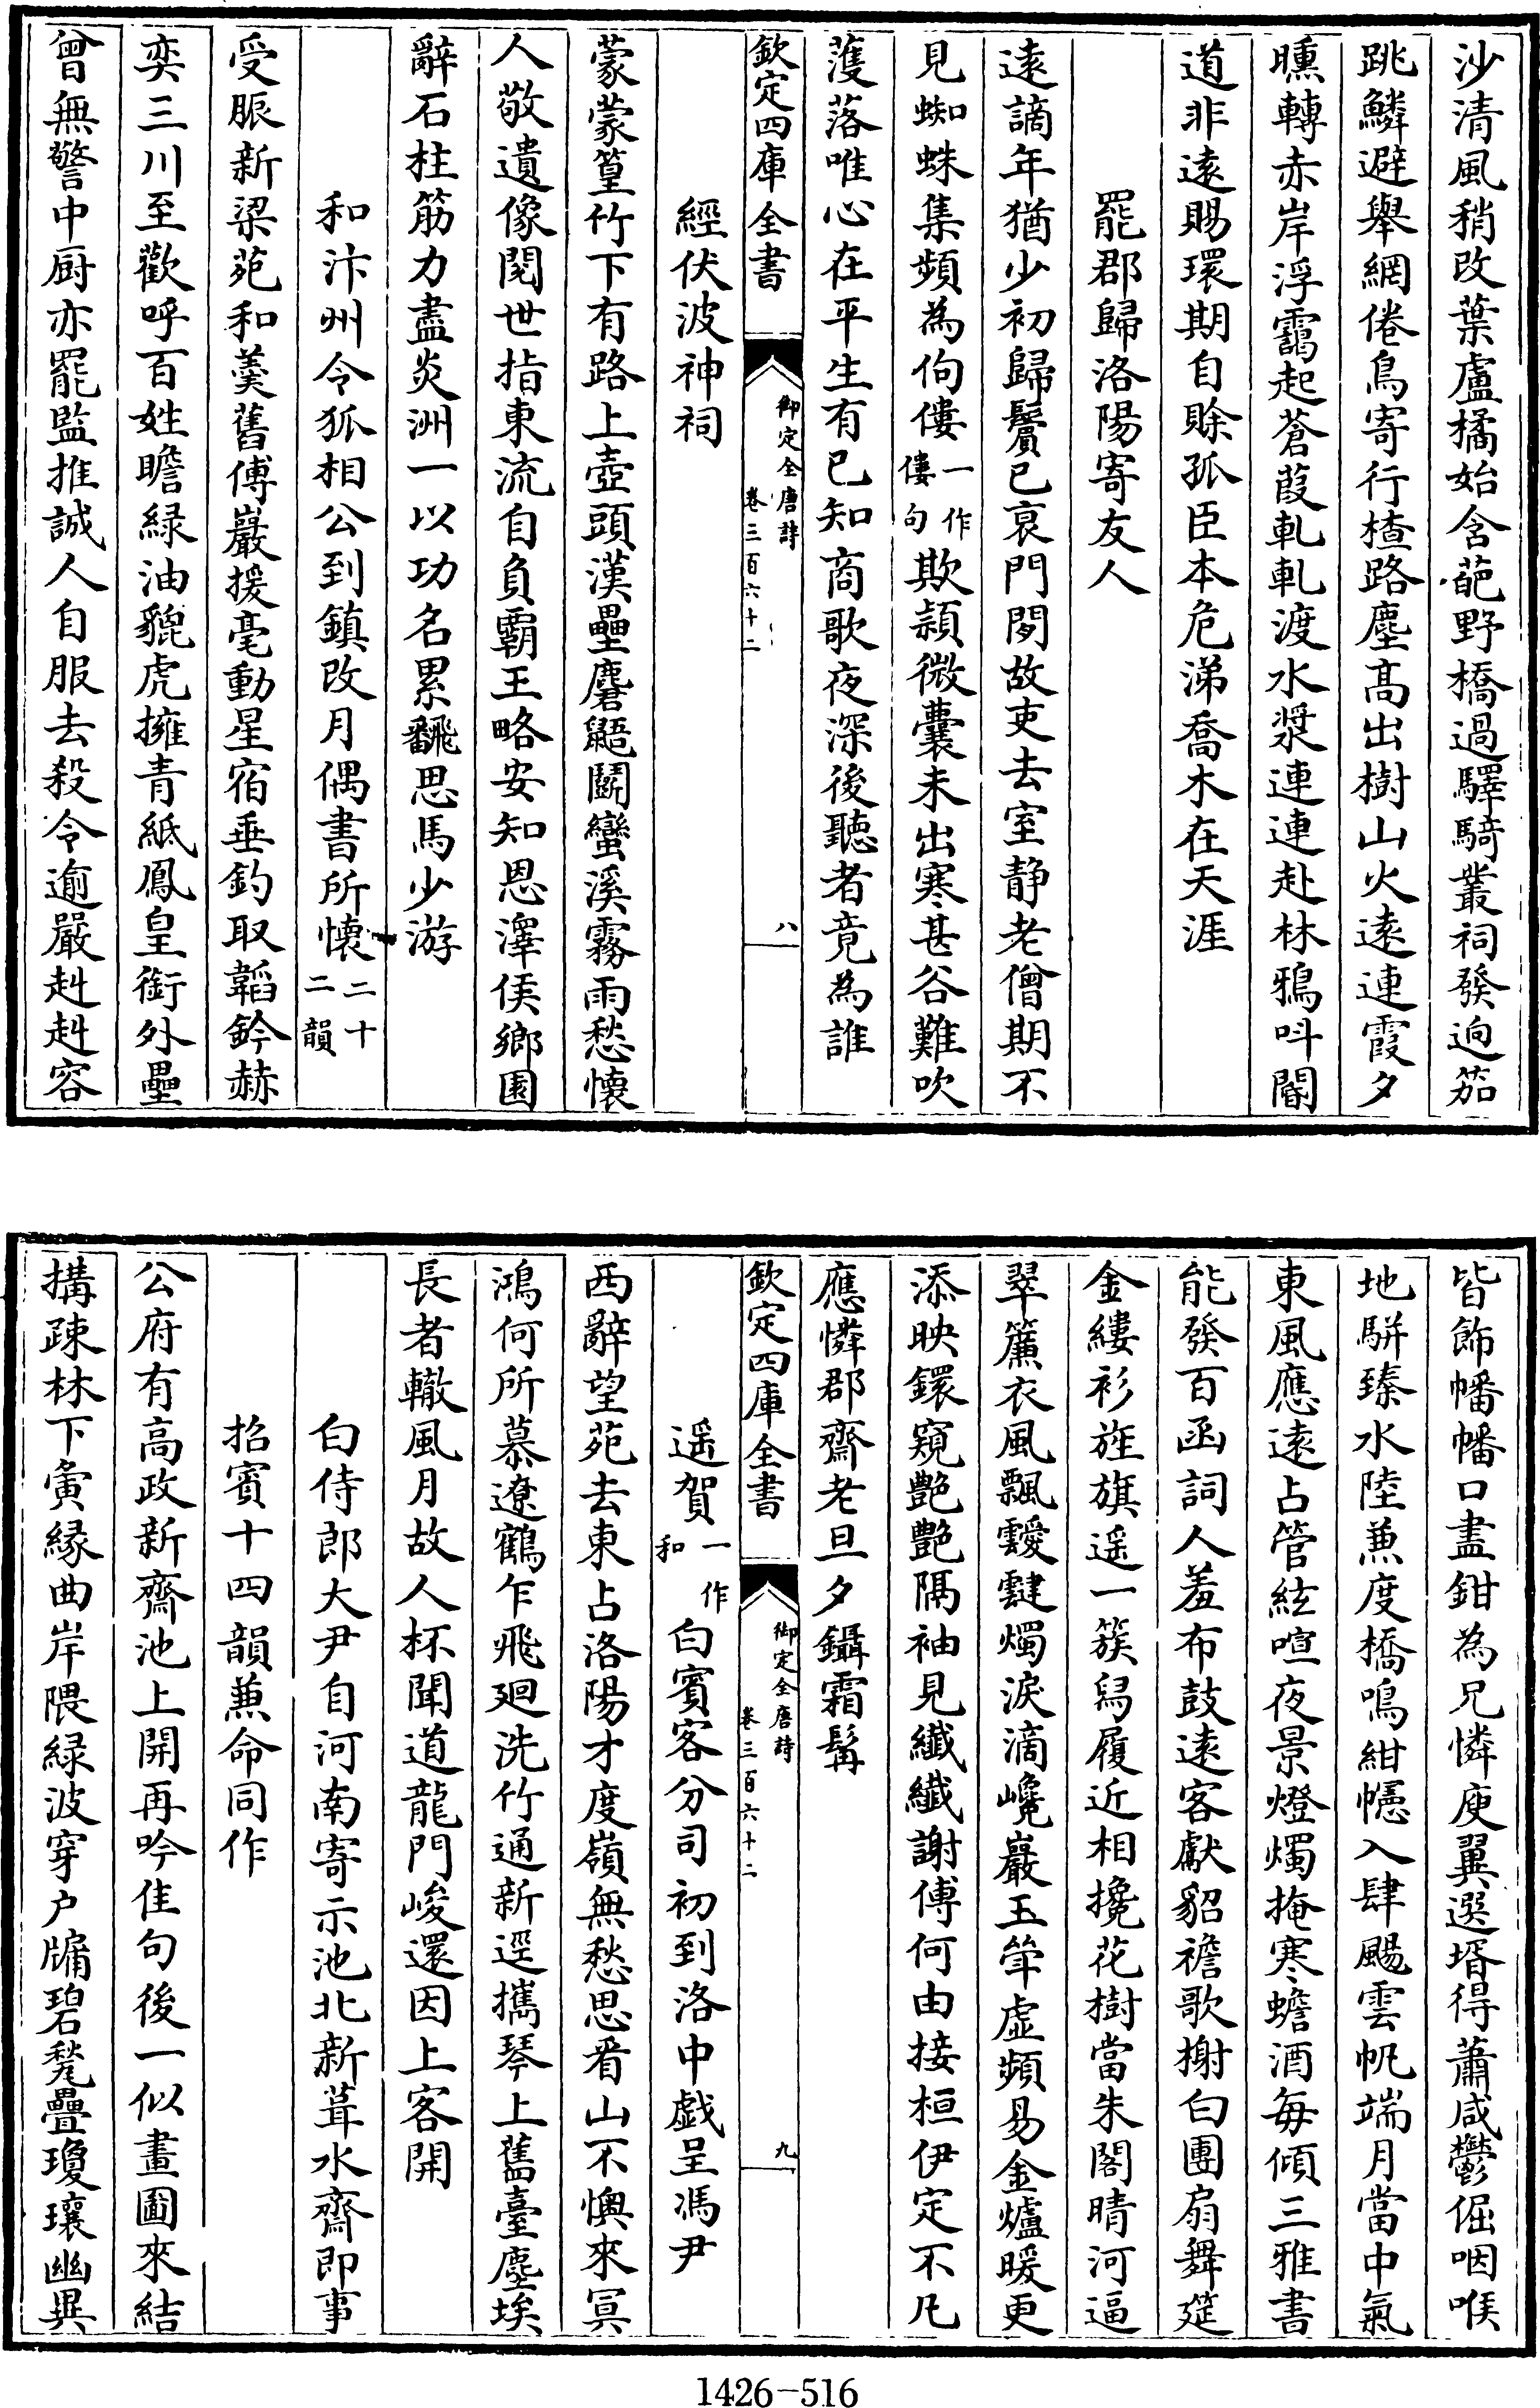 沙清風稍改葉盧橘始含葩野橋過驛騎叢祠發迥笳
跳鱗避舉網倦鳥寄行楂路塵髙出樹山火遠連霞夕
曛轉赤岸浮靄起蒼葭軋軋渡水漿連連赴林鴉呌閽
道非遠賜環期自賒孤臣本危涕喬木在天涯
罷郡歸洛陽寄友人
遠謫年猶少初歸鬢已衰門閒故吏去室静老僧期不
見蜘蛛集頻為佝僂一作僂句欺頴微囊未出寒甚谷難吹
濩落唯心在平生有已知商歌夜深後聽者竟為誰
欽定四庫全書
御定全唐詩
卷三百六十二
八
經伏波神祠
蒙蒙篁竹下有路上壺頭漢壘麏鼯鬬蠻溪霧雨愁懷
人敬遺像閱世指東流自負霸王略安知恩澤侯鄉園
辭石柱筋力盡炎洲一以功名累翻思馬少游
和汴州令狐相公到鎮改月偶書所懷二十二韻
受脤新梁苑和羮舊傅巖援毫動星宿垂釣取韜鈐赫
奕三川至歡呼百姓瞻緑油貔虎擁青紙鳳皇銜外壘
曾無警中厨亦罷監推誠人自服去殺令逾嚴赳赳容
皆飾幡幡口盡鉗為兄憐庾翼選壻得蕭咸鬱倔咽喉
地駢臻水陸兼度橋鳴紺幰入肆颺雲帆端月當中氣
東風應遠占管絃喧夜景燈燭掩寒蟾酒每傾三雅書
能發百函詞人羞布鼓遠客獻貂襜歌榭白團扇舞筵
金縷衫旌旗遥一簇舄履近相攙花樹當朱閣晴河逼
翠簾衣風飄靉靆燭淚滴巉巖玉斝虚頻易金爐暖更
添映鐶窺艶艶隔袖見纎纎謝傅何由接桓伊定不凡
應憐郡齋老旦夕鑷霜髯
欽定四庫全書
御定全唐詩
卷三百六十二
九
遥賀一作和白賓客分司初到洛中戯呈馮尹
西辭望苑去東占洛陽才度嶺無愁思看山不懊來冥
鴻何所慕遼鶴乍飛廻洗竹通新逕攜琴上舊臺塵埃
長者轍風月故人杯聞道龍門峻還因上客開
白侍郎大尹自河南寄示池北新葺水齋即事
招賓十四韻兼命同作
公府有高政新齋池上開再吟佳句後一似畫圖來結
搆疎林下寅縁曲岸隈緑波穿户牖碧甃疊瓊瓌幽異
1426-516